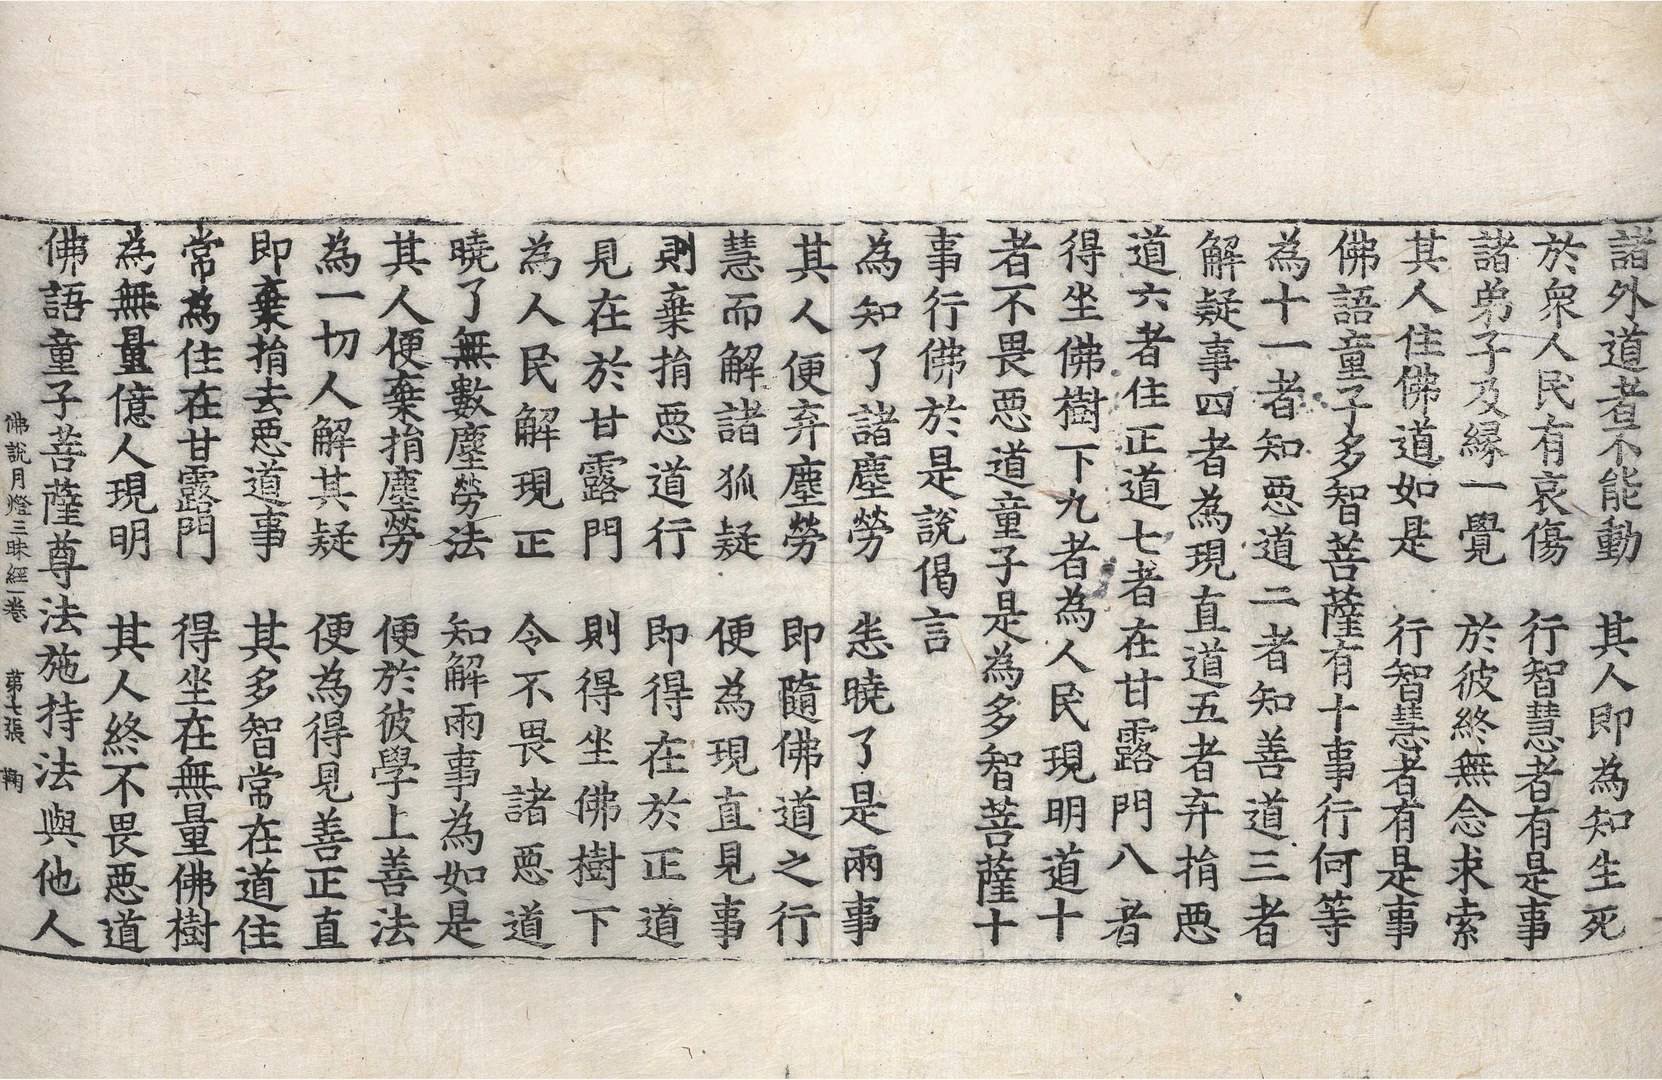 諸外道者不能動　其人即為知生死
於衆人民有哀傷　行智慧者有是事
諸弟子及縁一覺　於彼終無念求索
其人住佛道如是　行智慧者有是事
佛語童子多智菩薩有十事行何等
為十一者知惡道二者知善道三者
解疑事四者為現直道五者弃捐惡
道六者住正道七者在甘露門八者
得坐佛樹下九者為人民現明道十
者不畏惡道童子是為多智菩薩十
事行佛於是說偈言
為知了諸塵勞　恙曉了是兩事
其人便弃塵勞　即隨佛道之行
慧而解諸狐疑　便為現直見事
則棄捐惡道行　即得在於正道
見在於甘露門　則得坐佛樹下
為人民解現正　令不畏諸惡道
曉了無數塵勞法　知解兩事為如是
其人便棄捐塵勞　便於彼學上善法
為一切人解其疑　便為得見善正直
即棄捐去惡道事　其多智常在道住
常為住在甘露門　得坐在無量佛樹
為無量億人現明　其人終不畏惡道
佛語童子菩薩尊法施持法與他人
佛說月燈三昧經一卷　第七張　鞠